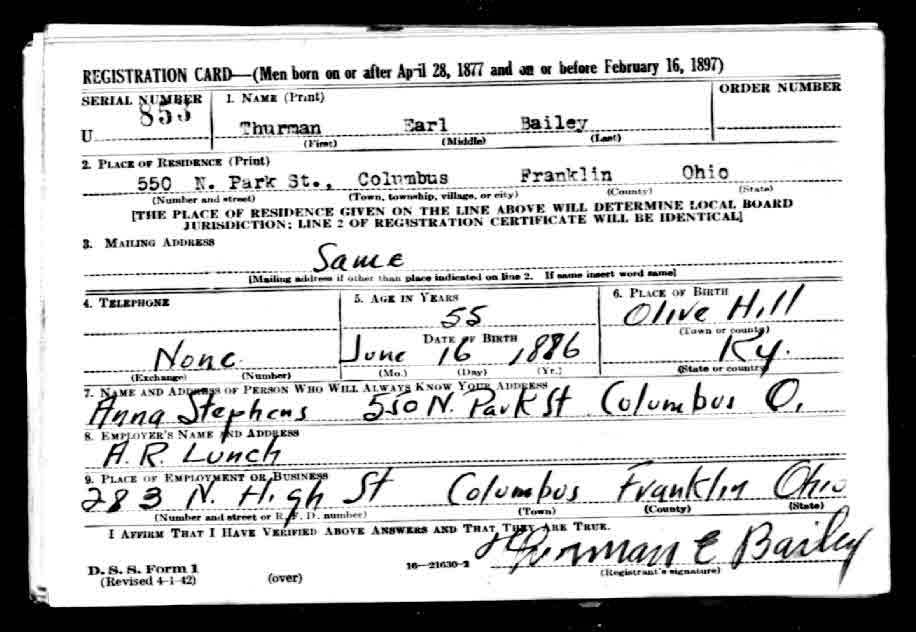 REGISTRATION CARD—(Men born on or after April 28, 1877 and on or before February 16, 1897)
SERIAL NUMBER
1. NAME (Print)
ORDER NUMBER
U 853
Thurman Earl Bailey
(First) (Middle) (Last)
2. PLACE OF RESIDENCE (Print)
550 N. Park St., Columbus Franklin Ohio
(Number and street) (Town, township, village, or city) (County) (State)
[THE PLACE OF RESIDENCE GIVEN ON THE LINE ABOVE WILL DETERMINE LOCAL BOARD
JURISDICTION; LINE 2 OF REGISTRATION CERTIFICATE WILL BE IDENTICAL]
3. MAILING ADDRESS
Same
[Mailing address if other than place indicated on line 2. If same insert word same]
4. TELEPHONE
None
(Exchange) (Number)
5. AGE IN YEARS
55
DATE OF BIRTH
June 16 1886
(Mo.) (Day) (Yr.)
6. PLACE OF BIRTH
Olive Hill
(Town or county)
Ky.
(State or country)
7. NAME AND ADDRESS OF PERSON WHO WILL ALWAYS KNOW YOUR ADDRESS
Anna Stephens 550 N. Park St Columbus O.
8. EMPLOYER'S NAME AND ADDRESS
A.R. Lunch
9. PLACE OF EMPLOYMENT OR BUSINESS
283 N. High St Columbus Franklin Ohio
(Number and street or R. F. D. number) (Town) (County) (State)
I AFFIRM THAT I HAVE VERIFIED ABOVE ANSWERS AND THAT THEY ARE TRUE.
Thurman E Bailey
D. S. S. Form 1
(Revised 4-1-42) (over) 16—21630-2 (Registrant's signature)